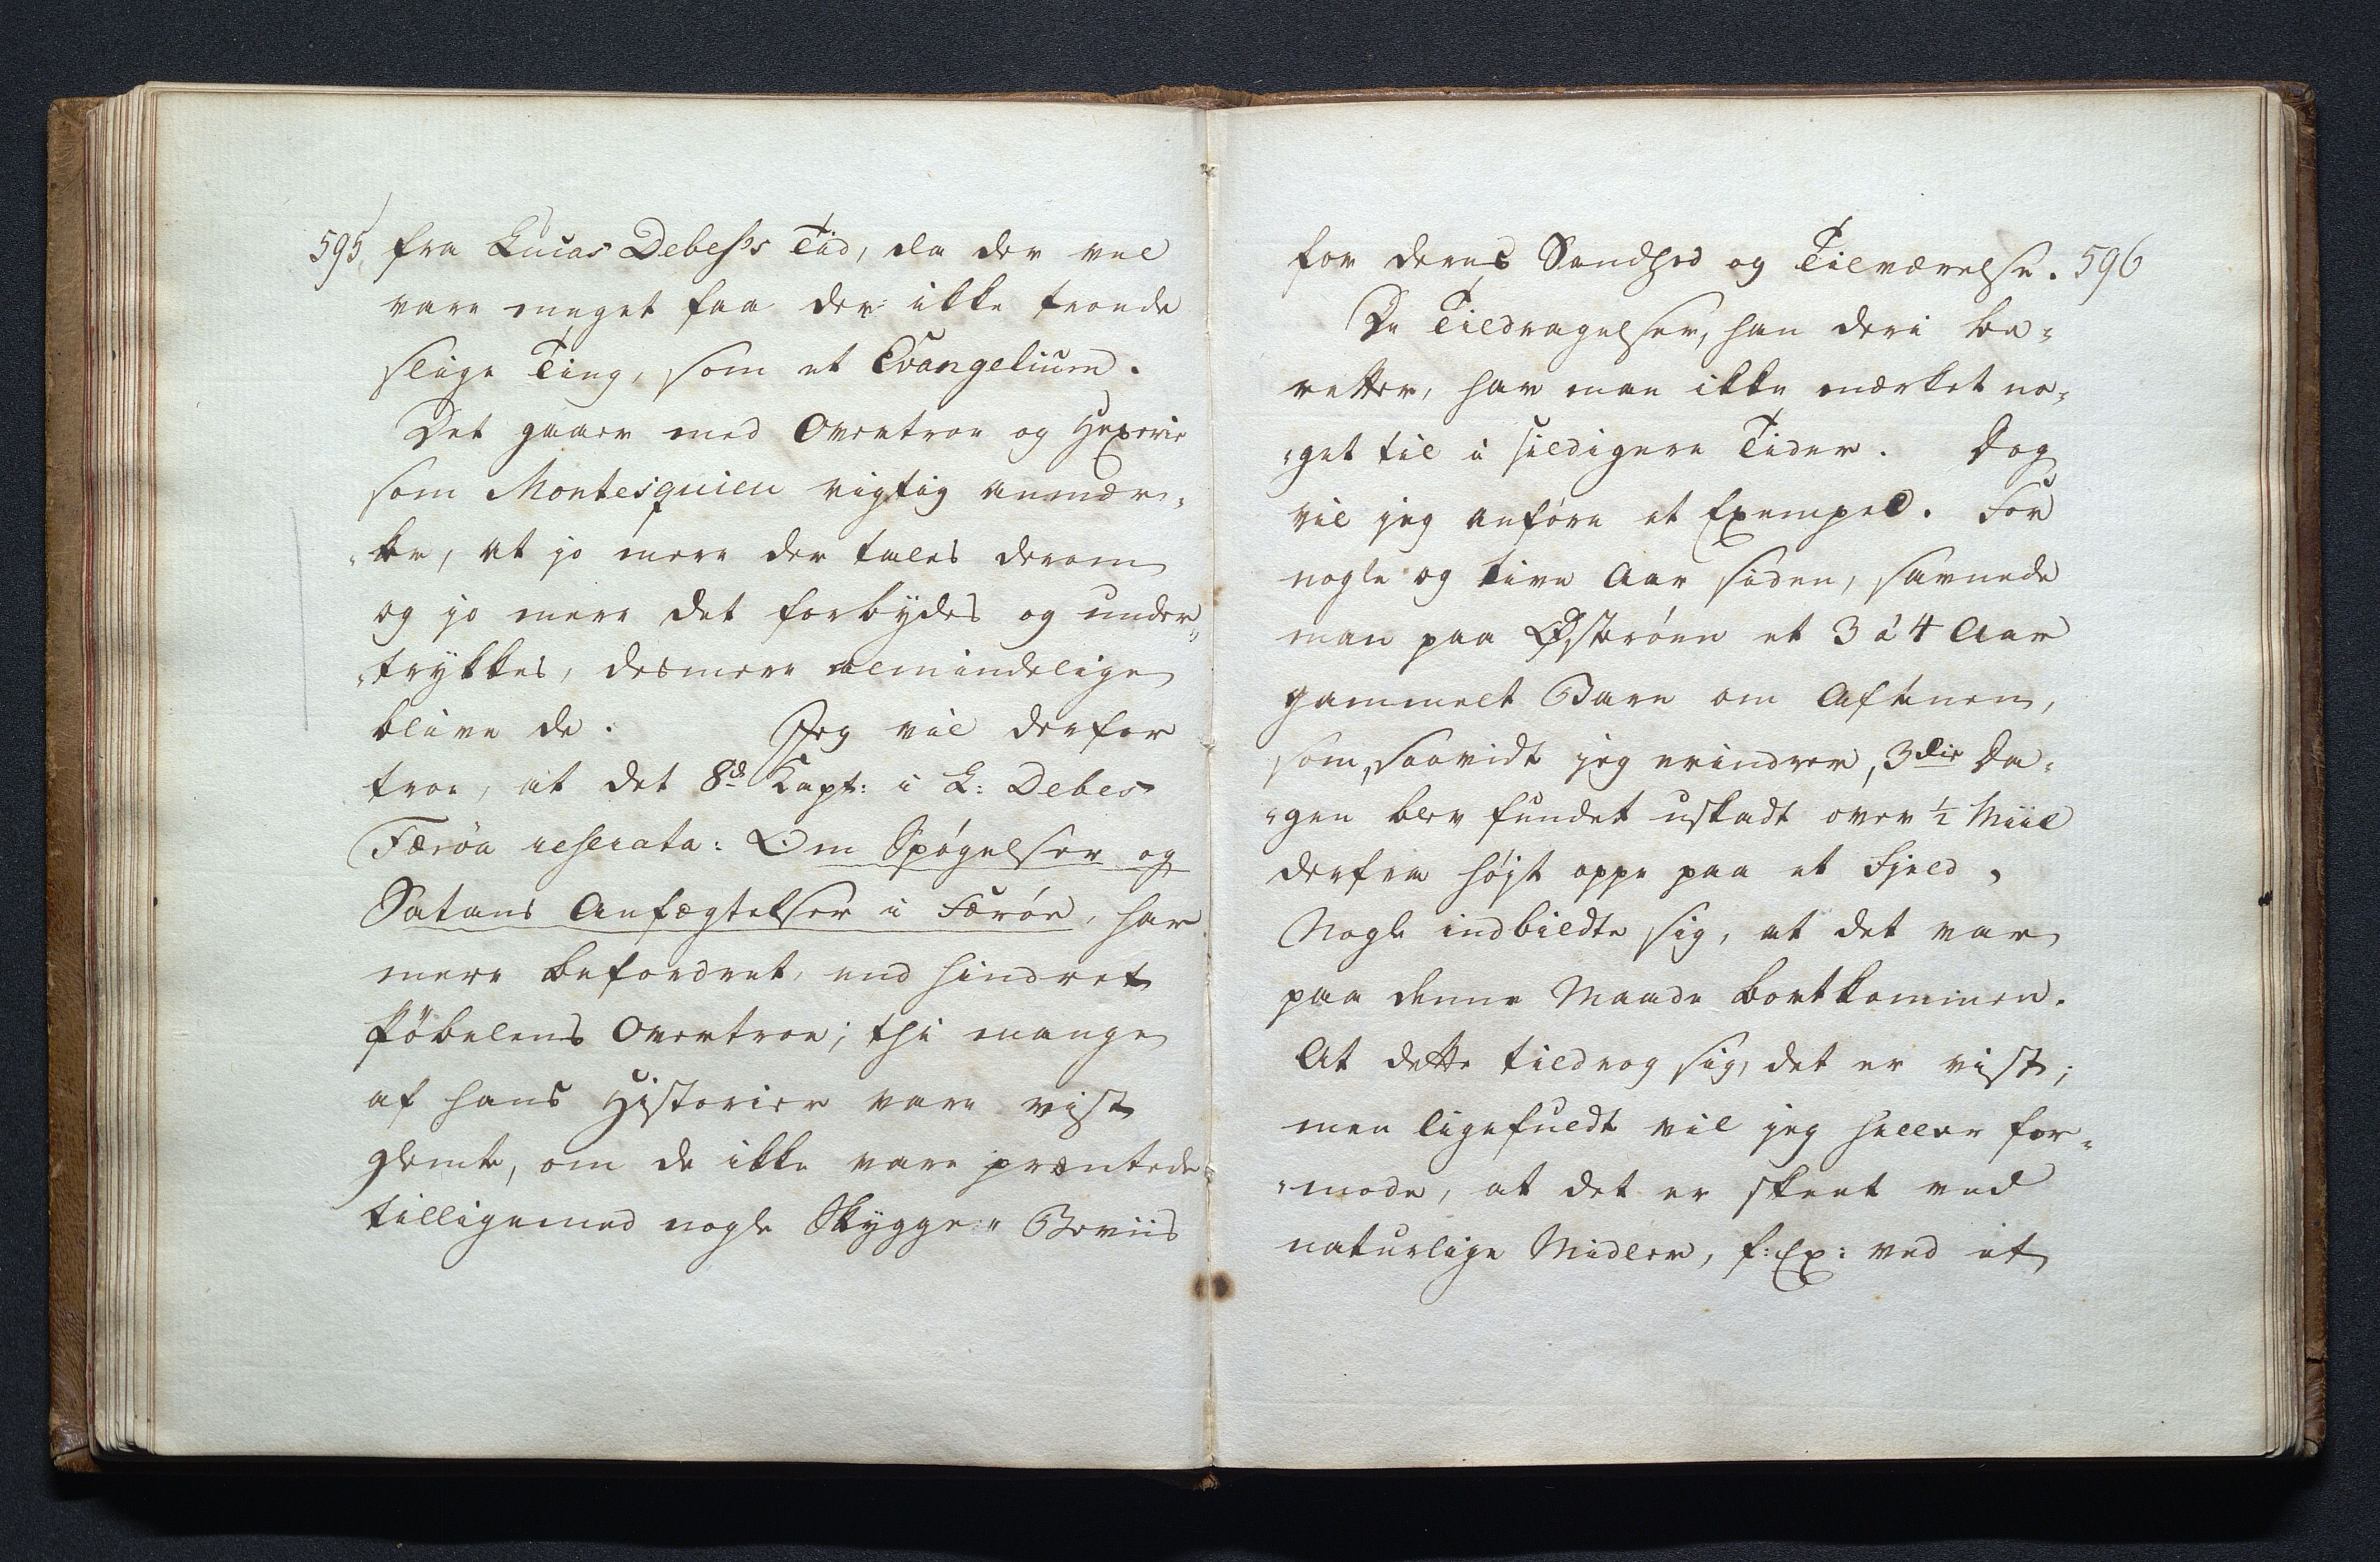 595 fra Lucas Debes's Tid, da der vel
vare meget faa der ikke troede
slige Ting, som et Evangelium.
Det gaaer med Overtroe og Hexerie
som Montesquieu rigtig anmær-
-ke, at jo mere der tales derom
og jo mere det forbÿdes og under-
-trykkes, desmere almindelige
blive de. Jeg vil derfor
troe, at det 8de Kapt: i L: Debes
Færöa reserata: Om Spøgelser og
Satans Anfægtelser i Færöe, har
mere befordret, end hindret
Pöbelens Overtroe; thi mange
af hans Historier vare vist
glemte, om de ikke vare præntede
tilligemed nogle Skygge- Beviis
for deres Sandhed og Tilværelse. 596
De Tildragelser, han deri be-
retter, har man ikke mærket no-
-get til i sildigere Tider. Dog
vil jeg anføre et Exempel. For
nogle og tive Aar siden, savnede
man paa Østerøen et 3 á 4 Aar
gammelt Barn om Aftenen,
som, saavidt jeg erindrer, 3die Da-
-gen blev fundet uskadt over ½ Miil
derfra højt oppe paa et Fjeld,
Nogle indbildte sig, at det var
paa denne Maade bortkommen.
At dette tildrog sig, det er vist;
men ligefuldt vil jeg heller for-
-mode, at det er skeet ved
naturlige Midler, f: Ex: ved et